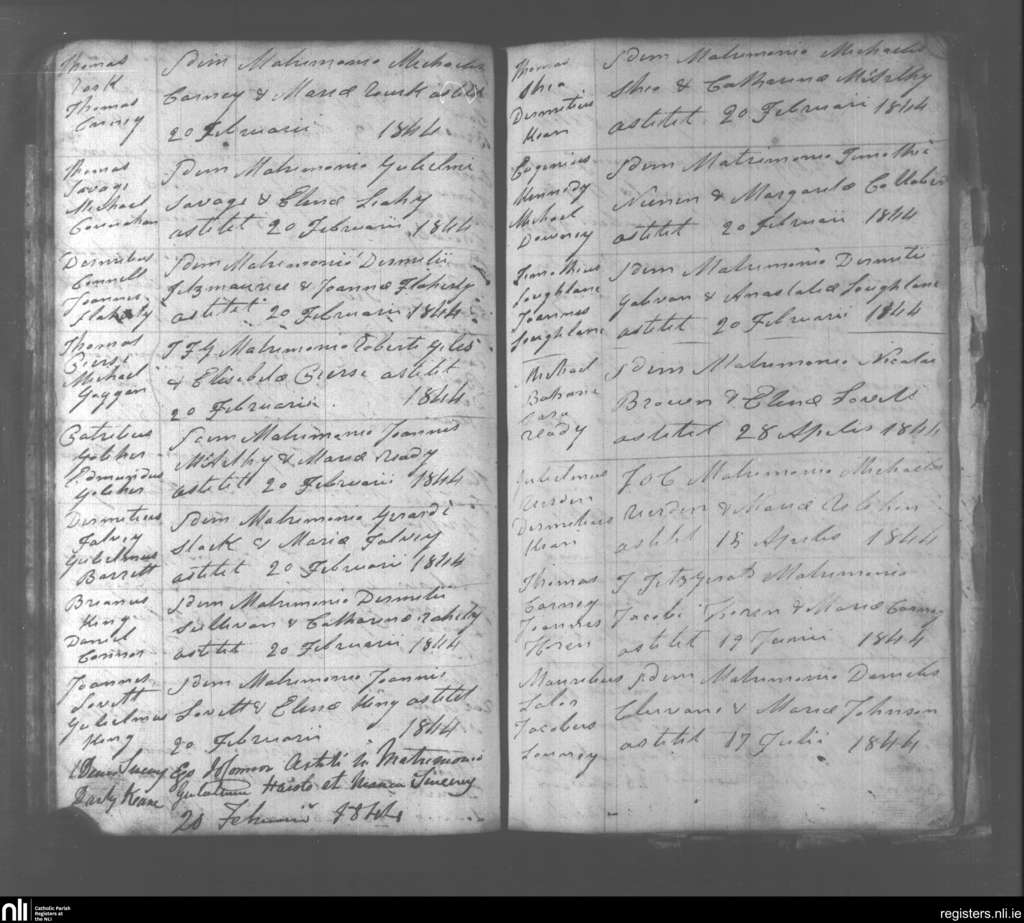 Thomas
Rork
Thomas
Carney
Idem Matrimonio Michaelis
Carney & Mariæ Rourk astitit
20 Februarii 1844
Thomas
Savage
Michael
Idem Matrimonio Gulielmi
Savage & Elenæ Leahy
astitit 20 Februarii 1844
Dermitius
Connell
Joannes
Flaherty
Idem Matrimonio Dermitii
Fitzmaurice & Joannæ Flaherty
astitit 20 Februarii 1844
Thomas
Pierse
Michael
Goggan
J F G Matrimonio Roberti Giles
& Elisabetæ Pierse astitit
20 Februarii 1844
Patritius
Edmundus
Idem Matrimonio Joannis
McElthy & Mariæ Ready
astitit 20 Februarii 1844
Dermitius
Falvey
Gulielmus
Barrett
Idem Matrimonio Gerardi
Stack & Mariæ Falvey
astitit 20 Februarii 1844
Brianus
King
Daniel
Connor
Idem Matrimonio Dermitii
Sullivan & Catharinæ Rahilly
astitit 20 Februarii 1844
Joannes
Lovett
Gulielmus
King
Idem Matrimonio Joannis
Lovett & Elenæ King astitit
20 Februarii 1844
Denis Sweeny
Darly Keane
Ego JO'Connor Astiti in Matrimonio
et Maria Sweeney
20 Februarii 1844
Thomas
Shea
Dermitius
Kean
Idem Matrimonio Michaelis
Shea & Catharinæ McElthy
astitit 20 Februarii 1844
Eugenius
Kennedy
Michael
Downey
Idem Matrimonio Timothii
& Margaretæ
astitit 20 Februarii 1844
Timothius
Loughlane
Joannes
Loughlane
Idem Matrimonio Dermitii
Galvan & Anastatiæ Loughlane
astitit 20 Februarii 1844
Michael
Bohane
Ready
Idem Matrimonio Nicolai
Brown & Elenæ Lovett
astitit 28 Aprilis 1844
Gulielmus
Dermitius
Kean
J O C Matrimonio Michaelis
astitit 15 Aprilis 1844
Thomas
Carney
Joannes
Horen
J Fitzgerald Matrimonio
Jacobi Horen & Mariæ Carney
astitit 19 Junii 1844
Mauritius
Lalor
Jacobus
Idem Matrimonio Danielis
& Mariæ Johnson
astitit 17 Julii 1844
nli
Catholic Parish
Registers at
the NLI
registers.nli.ie